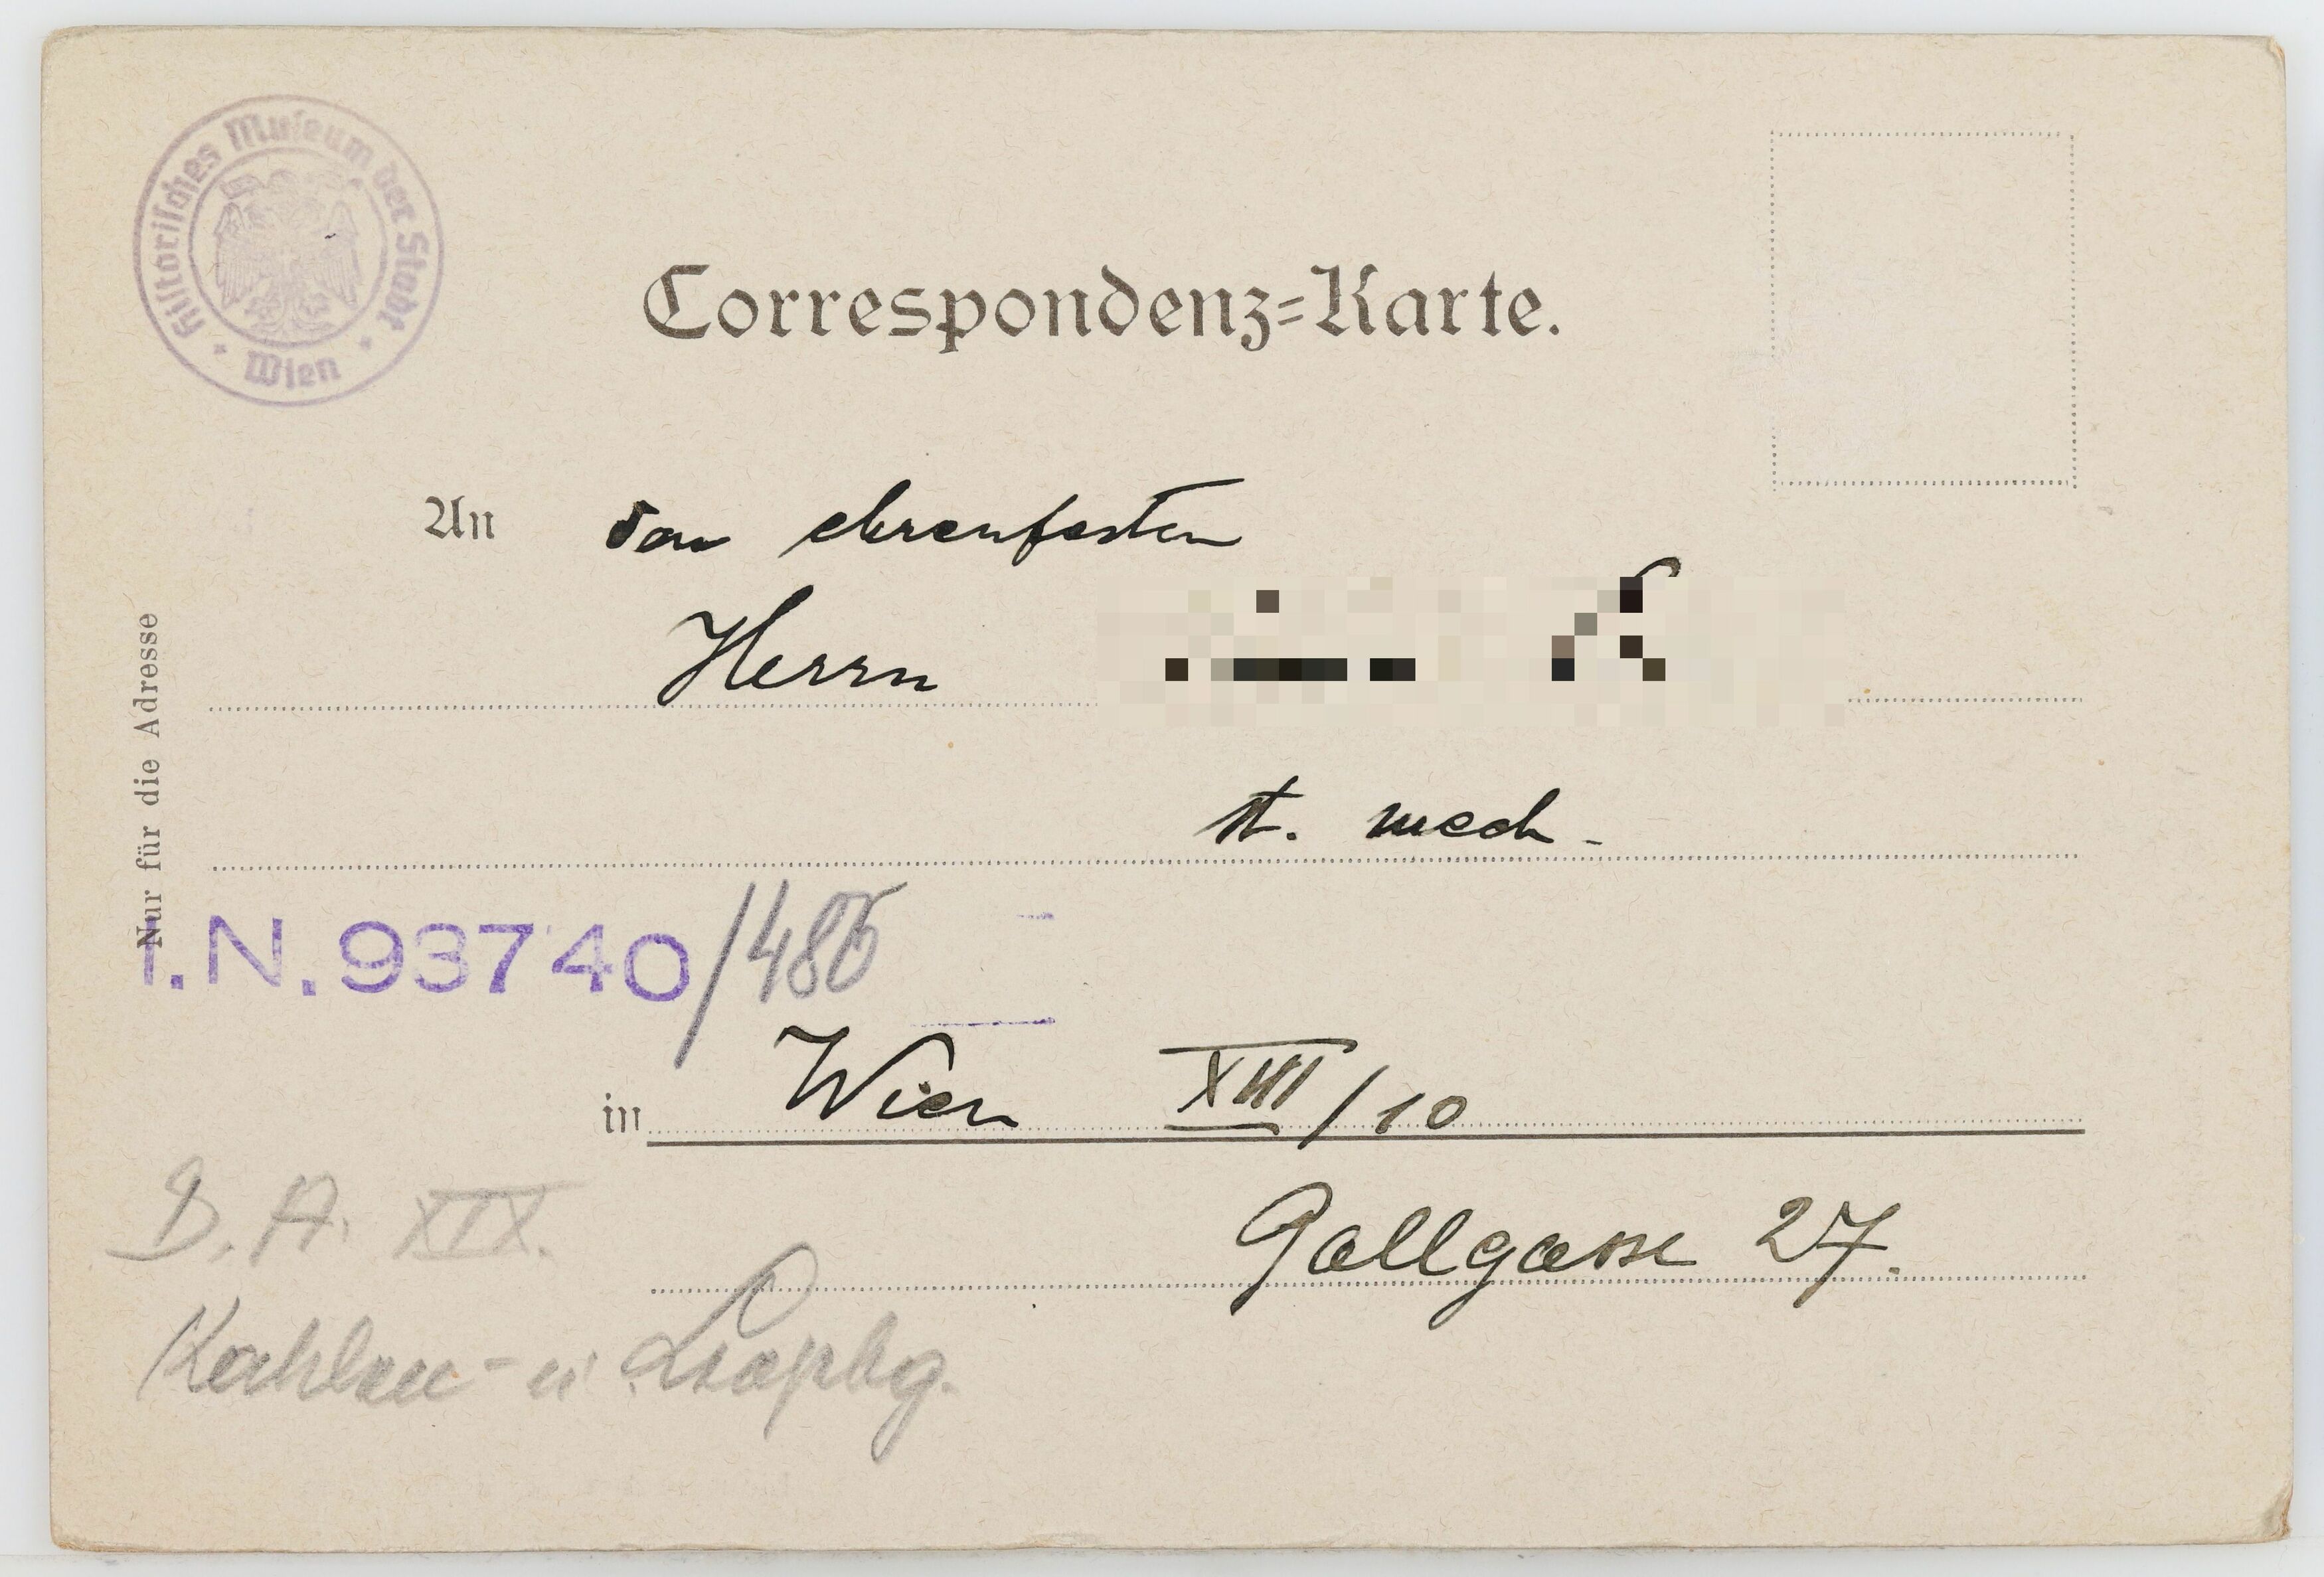 Historisches Museum der Stadt
Wien
Correspondenz-Karte.
An den ehrenfesten
Herrn
st. med.
Nur für die Adresse
I.N. 93740/485
in Wien XIII/10
Gallgasse 27.
B. A. XIX.
Kahlen- u. Leopbg.